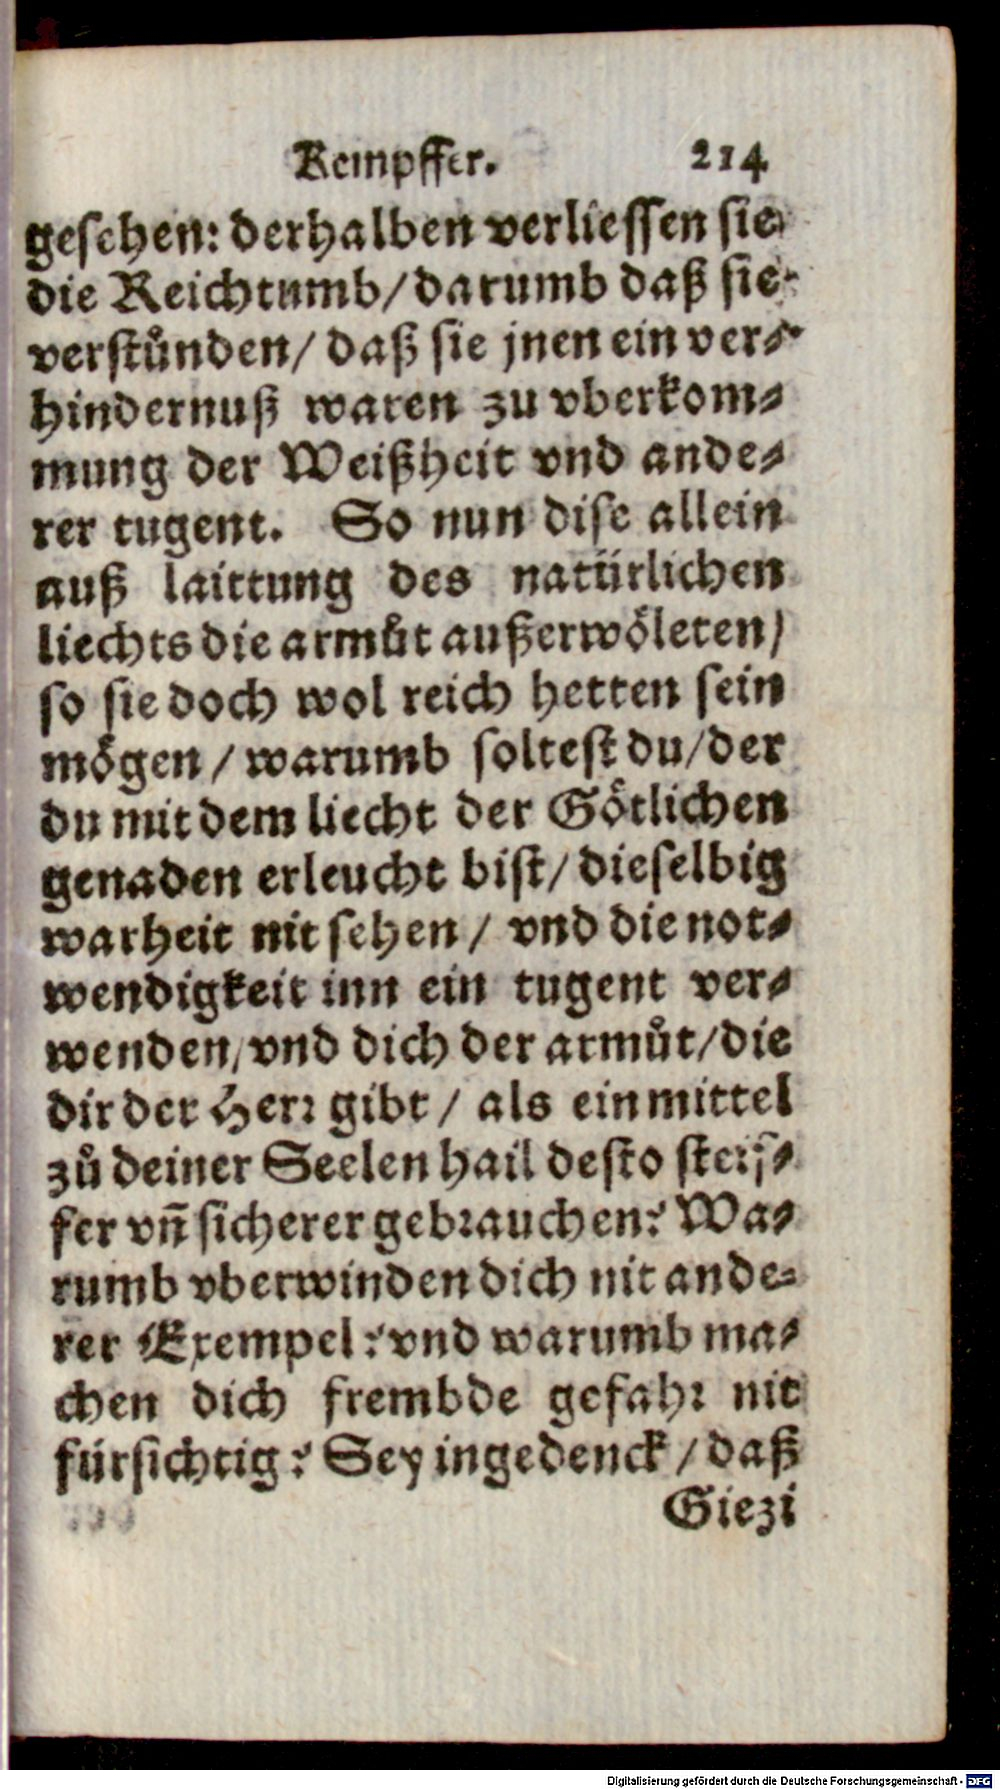 Kempffer. 214
gesehen: derhalben verliessen sie
die Reichtumb/ darumb daß sie
verstuͤnden/ daß sie jnen ein ver⸗
hindernuß waren zu vberkom⸗
mung der Weißheit vnd ande⸗
rer tugent. So nun dise allein
auß laittung des natürlichen
liechts die armuͤt außerwoͤleten/
so sie doch wol reich hetten sein
moͤgen / warumb soltest du/ der
du mit dem liecht der Goͤtlichen
genaden erleucht bist/ dieselbig
warheit nit sehen / vnd die not⸗
wendigkeit inn ein tugent ver⸗
wenden/ vnd dich der armuͦt/ die
dir der Herꝛ gibt / als ein mittel
zuͦ deiner Seelen hail desto steif⸗
fer vn̄ sicherer gebꝛauchen? Wa⸗
rumb vberwinden dich nit ande⸗
rer Exempel? vnd warumb ma⸗
chen dich frembde gefahꝛ nit
fürsichtig? Sey ingedenck / daß
Giezi
Digitalisierung gefördert durch die Deutsche Forschungsgemeinschaft - DFG